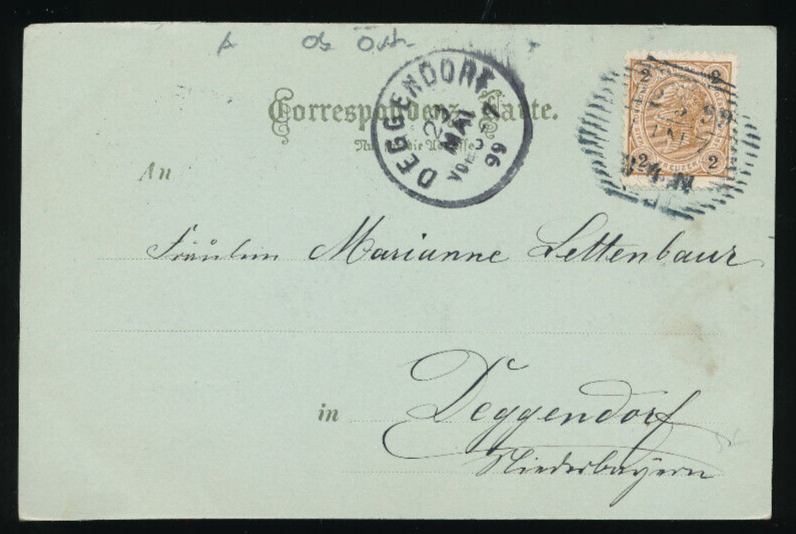 Ob Öst.
Correspondenz-Karte.
Nur für die Adresse
DEGGENDORF
23
MAI
VORM
99
2 2
2 2
KREUZER
An
Fräulein Marianne Lettenbaur
in Deggendorf
Niederbayern